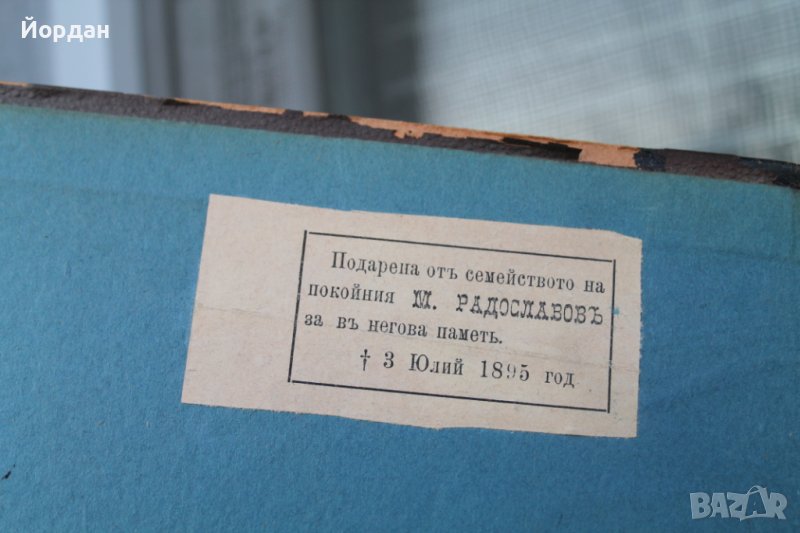 Йордан
Подарена отъ семейството на
покойния М. РАДОСЛАВОВЪ
за въ негова паметь.
† 3 Юлий 1895 год
BAZAR